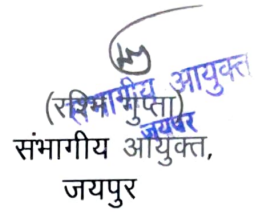 (रश्मि गुप्ता)
संभागीय आयुक्त
जयपुर
संभागीय आयुक्त,
जयपुर